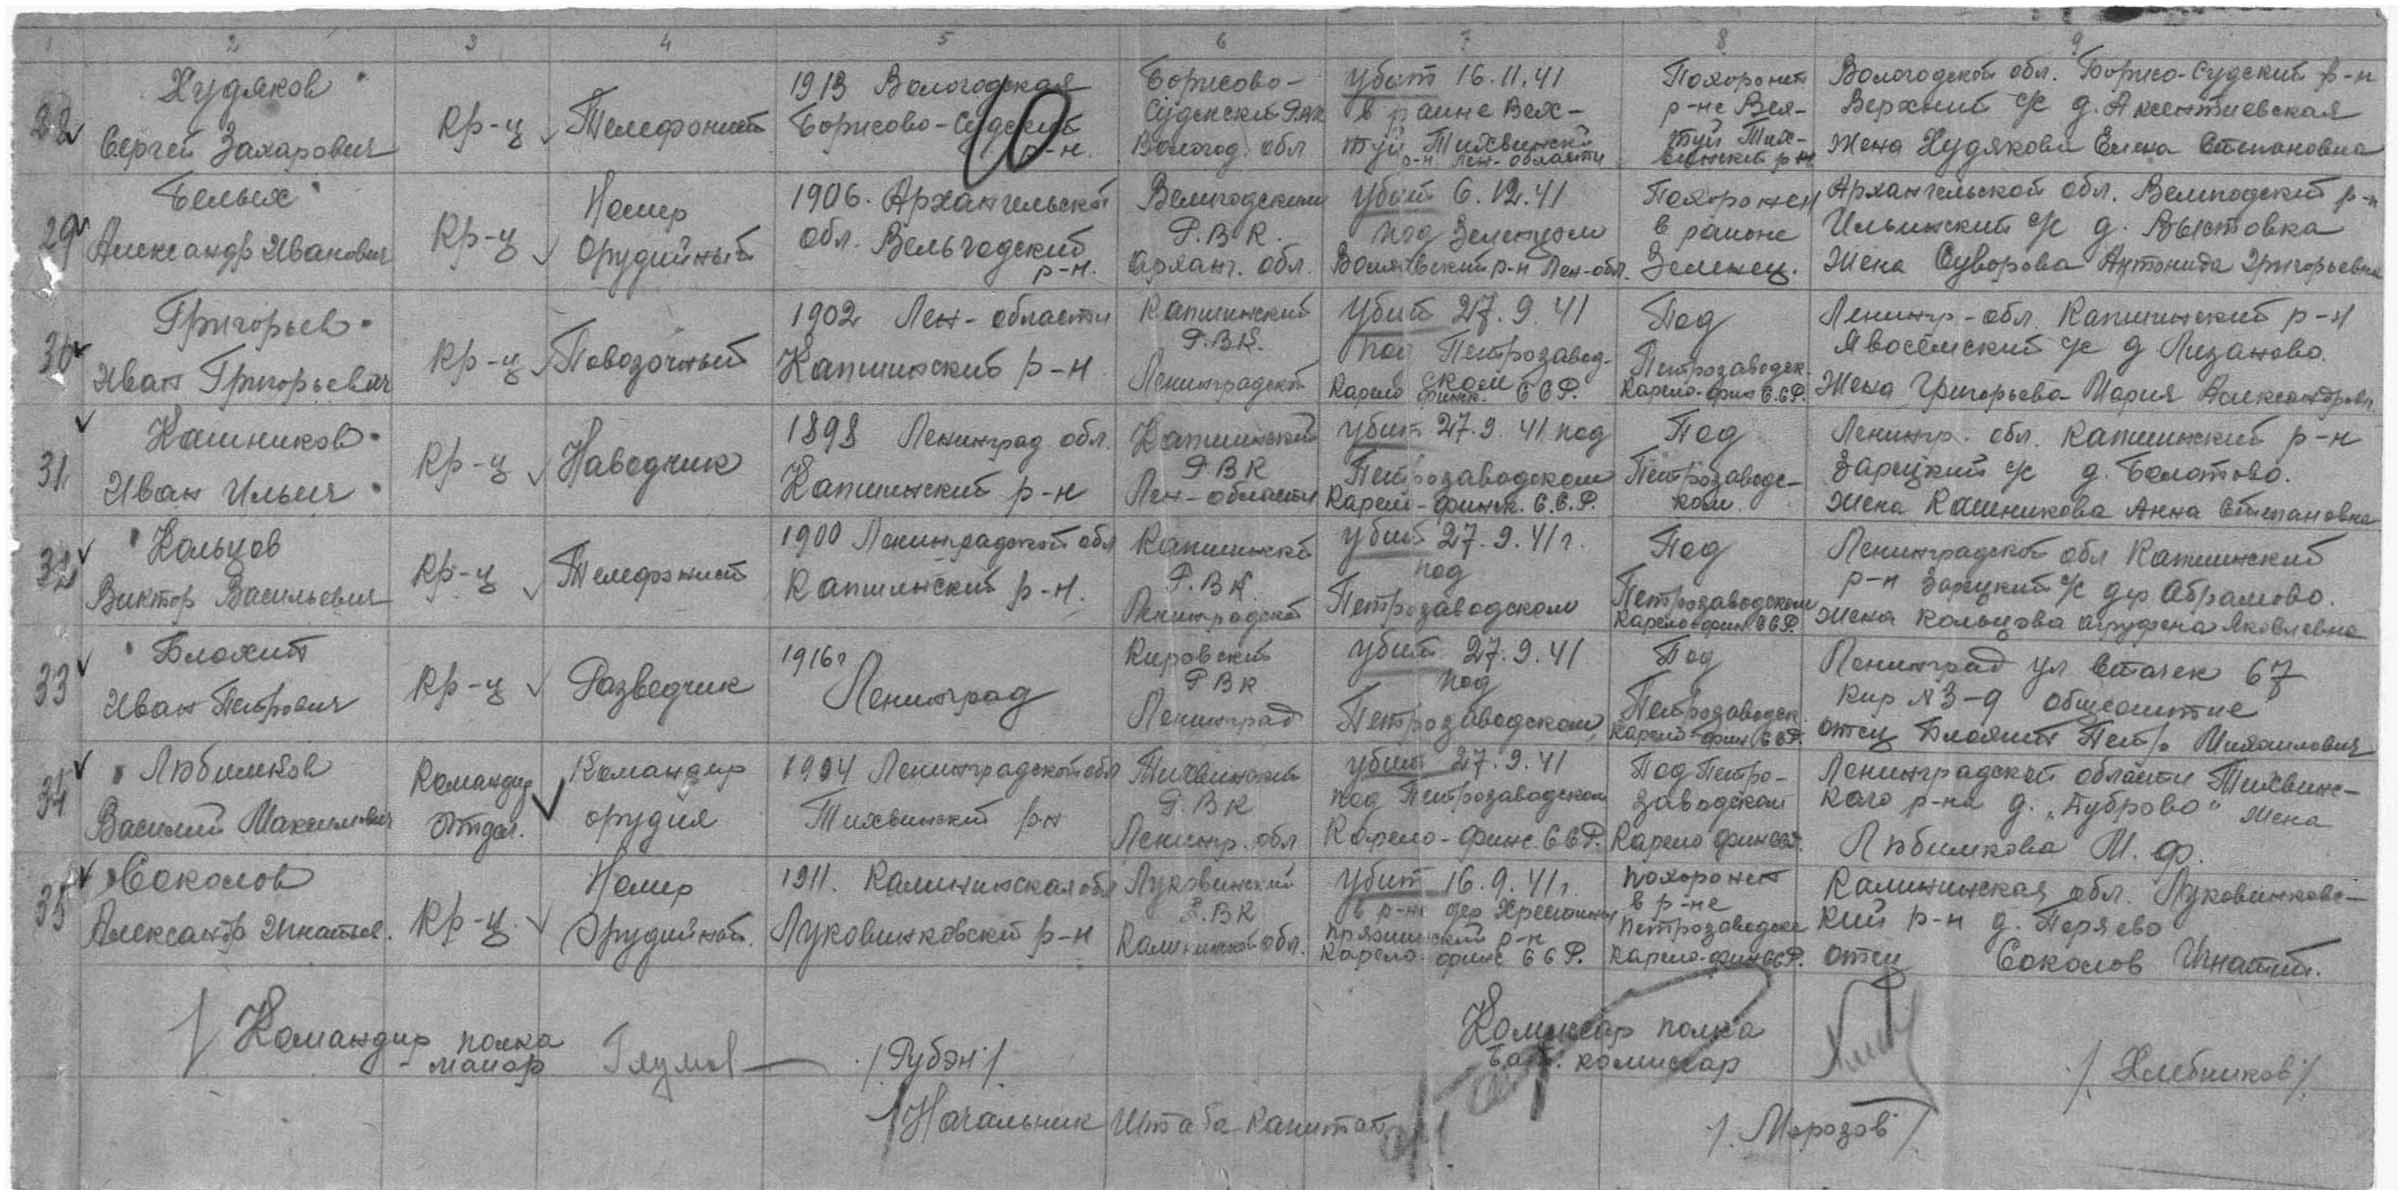 1 2 3 4 5 6 7 8 9
28 Худяков Сергей Захарович
Кр-ц
Телефонист
1913 Вологодская
Борисово-Судский
р-н.
Борисово-
Судский РВК
Вологод. обл
убит 16.11.41
в раине Вях-
туй Тихвинский
р-н Лен-области
Похоронен
р-не Вях-
туй Тих-
винский р-н
Вологодской обл. Борисо-Судский р-н
Верхний с/с д. Аксентиевская
Жена Худякова Елена Степановна
29 Белых Александр Иванович
Кр-ц
Номер
Орудийный
1906. Архангельской
обл. Вельгодский
р-н.
Велигодским
Р.В.К.
Арханг. обл.
Убит 6.12.41
под Зеленцом
Волховский р-н Лен-обл.
Похоронен
в районе
Зеленец.
Архангельской обл. Велигодский р-н
Ильинский с/с д. Выстовка
Жена Суворова Антонида Григорьевна
30 Григорьев Иван Григорьевич
Кр-ц
Повозочный
1902 Лен-области
Капшинский р-н
Капшинский
Р.В.К.
Ленинградской
Убит 27.9.41
под Петрозавод-
ском
Карело финск. ССР.
Под
Петрозаводск.
Карело-фин С.СР.
Ленингр-обл. Капшинский р-н
Явосемский с/с д Лизаново.
Жена Григорьева Мария Александровн
31 Кашников Иван Ильич
Кр-ц
Наводчик
1898 Ленинград обл.
Капшинский р-н
Капшинский
РВК
Лен-области
убит 27.9.41 под
Петрозаводском
Карело-финск. С.С.Р.
Под
Петрозаводс-
ком
Ленингр. обл. Капшинский р-н
Зарецкий с/с д. Болотово.
Жена Кашникова Анна Степановна
32 Кольцов Виктор Васильевич
Кр-ц
Телефонист
1900 Ленинградской обл
Капшинский р-н.
Капшинский
Р.В.К.
Ленинградской
убит 27.9.41г.
под
Петрозаводском
Под
Петрозаводском
Карело-фин ССР.
Ленинградской обл Капшинский
р-н Зарецкий с/с дер Абрамово.
Жена Кольцова Агрофена Яковлевна
33 Блохит Иван Петрович
Кр-ц
Разведчик
1916г
Ленинград
Кировский
РВК
Ленинград
убит 27.9.41
под
Петрозаводском
Под
Петрозаводск.
Карело-фин ССР.
Ленинград ул Стачек 67
Кир №3-д общежитие
отец Блохит Петр Михаилович
34 Любимков Василий Максимович
Командир
Отдел.
Командир
орудия
1904 Ленинградской обл
Тихвинский р-н
Тихвинский
Р.В.К
Ленингр. обл
убит 27.9.41
под Петрозаводском
Карело-финс. ССР.
Под Петро-
заводском
Карело фин ССР.
Ленинградской области Тихвинс-
кого р-на д. „Дуброво" жена
Любимкова М. Ф.
35 Соколов Александр Игнатьев.
Кр-ц.
Номер
Орудийной.
1911. Калининская обл
Луковниковский р-н
Луковинский
Р.В.К
Калининской обл.
Убит 16.9.41г.
в р-не дер
Пряжинский р-н
Карело-финс ССР.
похоронен
в р-не
Петрозаводска
Карело-фин ССР.
Калининская обл. Луковниковс-
кий р-н д. Перяево
отец Соколов Игнатий.
10
/ Командир полка
- майор Глумов / Рубэн /.
Комиссар полка
Бат. комиссар /. Хлебников /.
/ Начальник Штаба Капитан /. Морозов /.